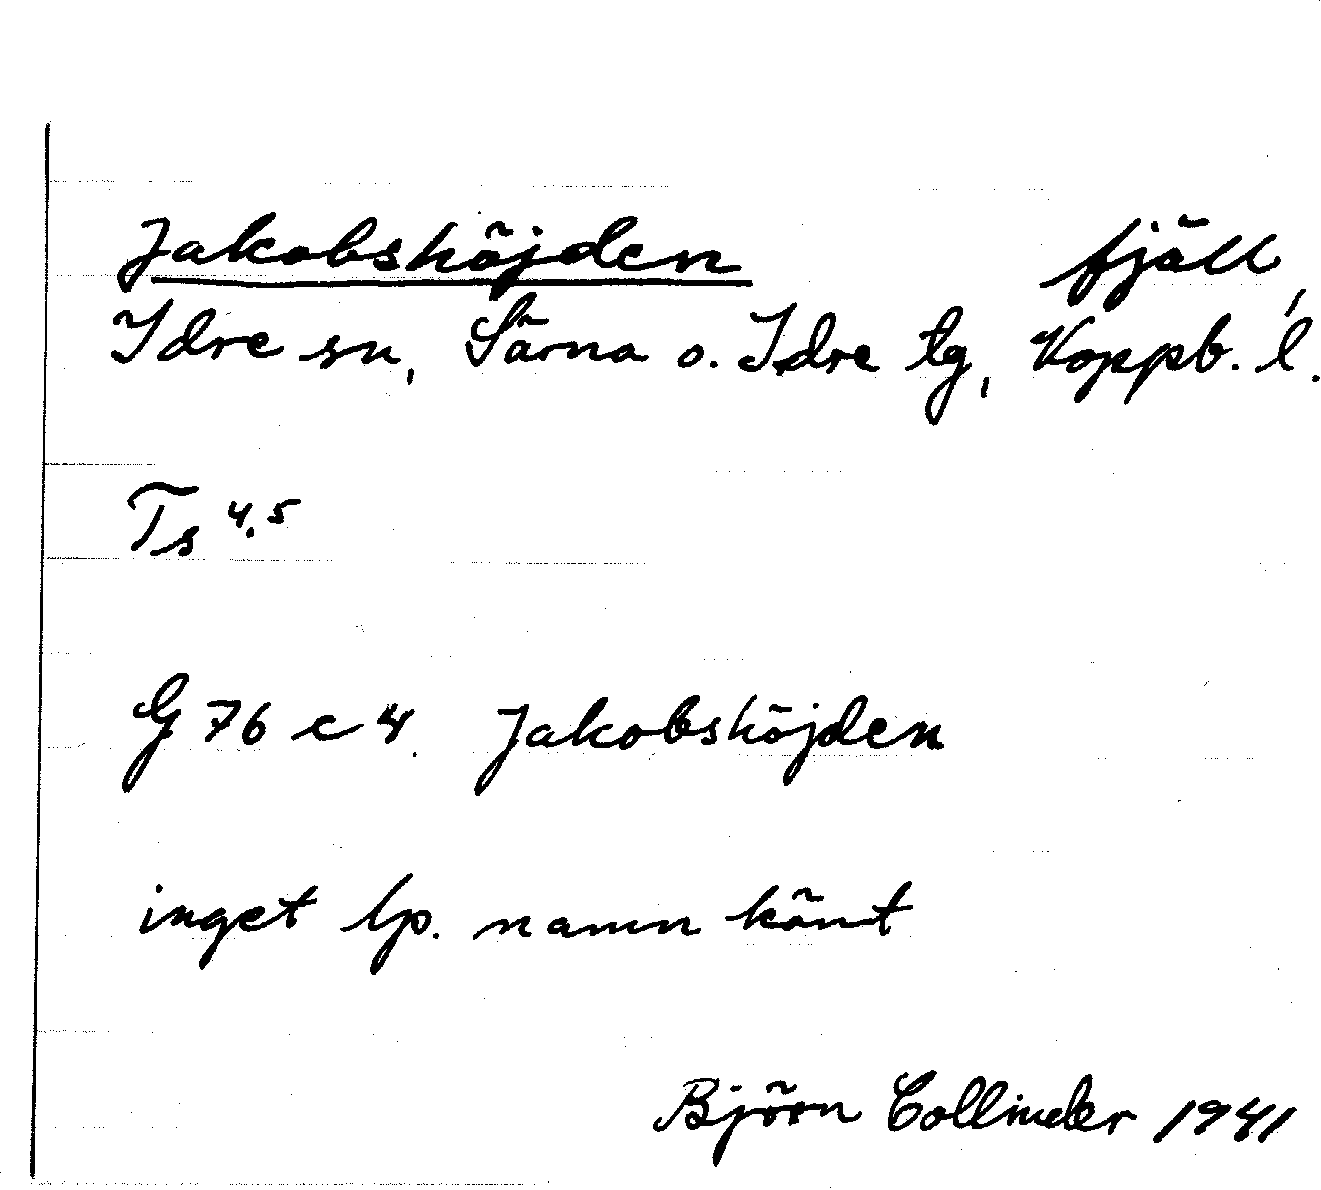 Jakobshöjden fjäll,
Idre sn, Särna o. Idre tg, Koppb. l.
Ts 4.5
G 76 c 4. Jakobshöjden
inget lp. namn känt
Björn Collinder 1941